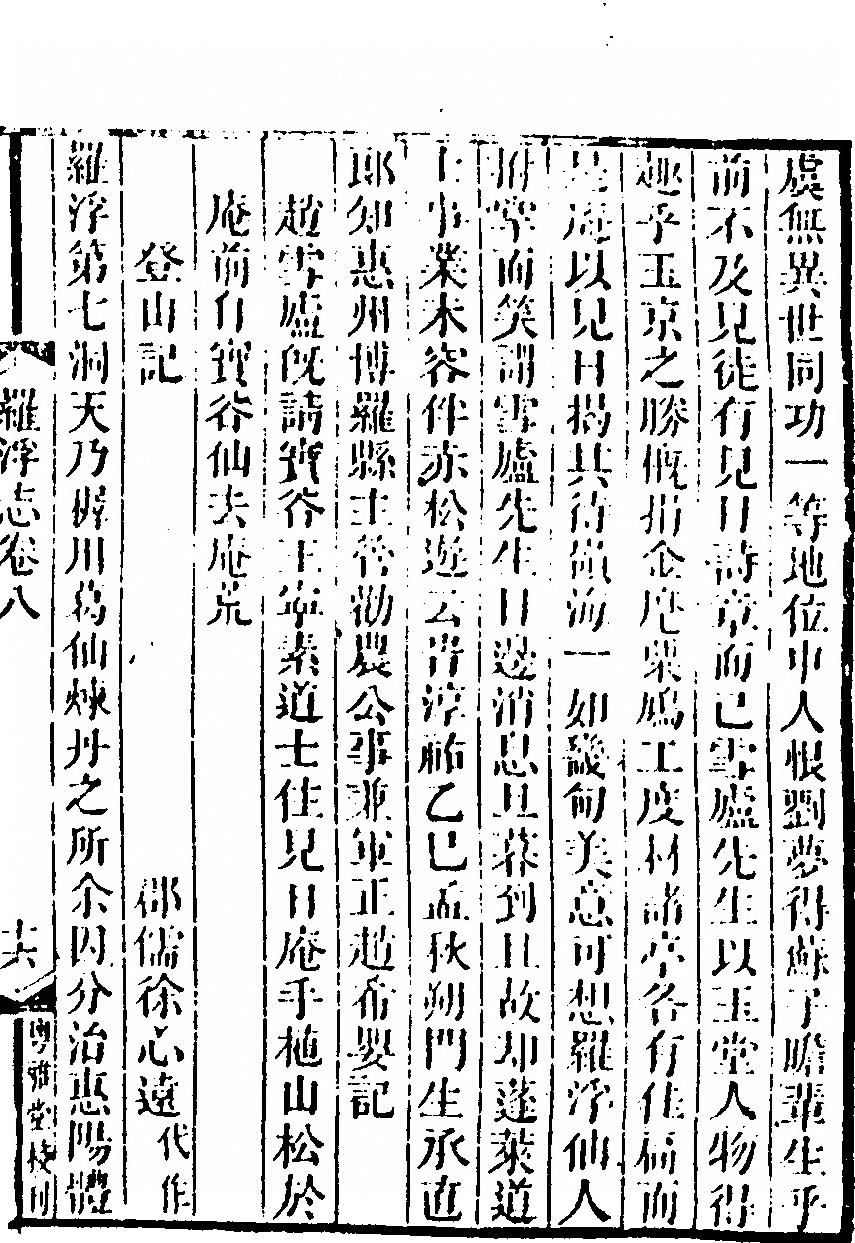 虞無異世同功一等地位中人恨劉夢得蘇子瞻輩生乎
前不及見徒有見日詩章而已雪廬先生以玉堂人物得
趣乎玉京之勝慨捐金庀粟鳩工度材諸亭各有佳扁而
是庵以見日揭其待嶺海一如畿甸美意可想羅浮仙人
拊掌而笑謂雪廬先生日邊消息旦暮到且故却蓬萊道
上事業未容伴赤松遊云耳淳祐乙巳孟秋朔門生承直
郎知惠州博羅縣主管勸農公事兼軍正趙希嬰記
趙雪廬旣請寶谷王寧素道士住見日庵手植山松於
庵前有寶谷仙去庵荒
登山記
郡儒徐心遠代作
羅浮第七洞天乃稚川葛仙煉丹之所余因分治惠陽體
羅浮志卷八
六
粤雅堂校刊